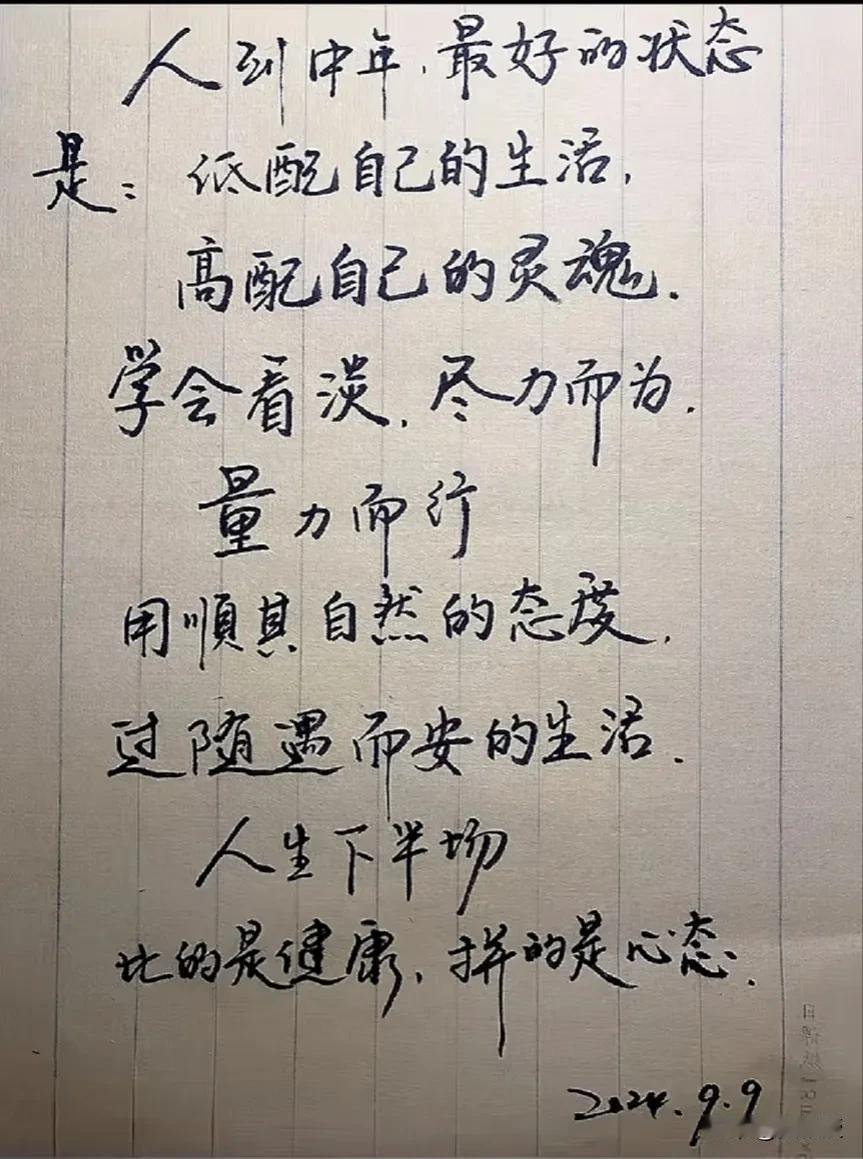 人到中年,最好的状态
是:低配自己的生活,
高配自己的灵魂.
学会看淡,尽力而为.
量力而行
用順其自然的态度,
过随遇而安的生活.
人生下半场
比的是健康,拼的是心态.
2024.9.9